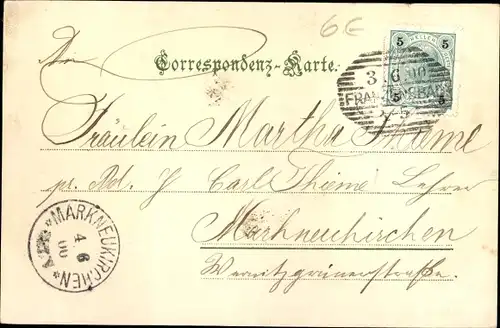 6€
An
Correspondenz-Karte.
5 HELLER 5
5 5
3 6 00
FRANZENSBAD
Fräulein Martha Thieme
pr. Ad. H Carl Thieme Lehrer
Markneukirchen
Wernitzgrünerstraße.
*MARKNEUKIRCHEN*
4 6
00